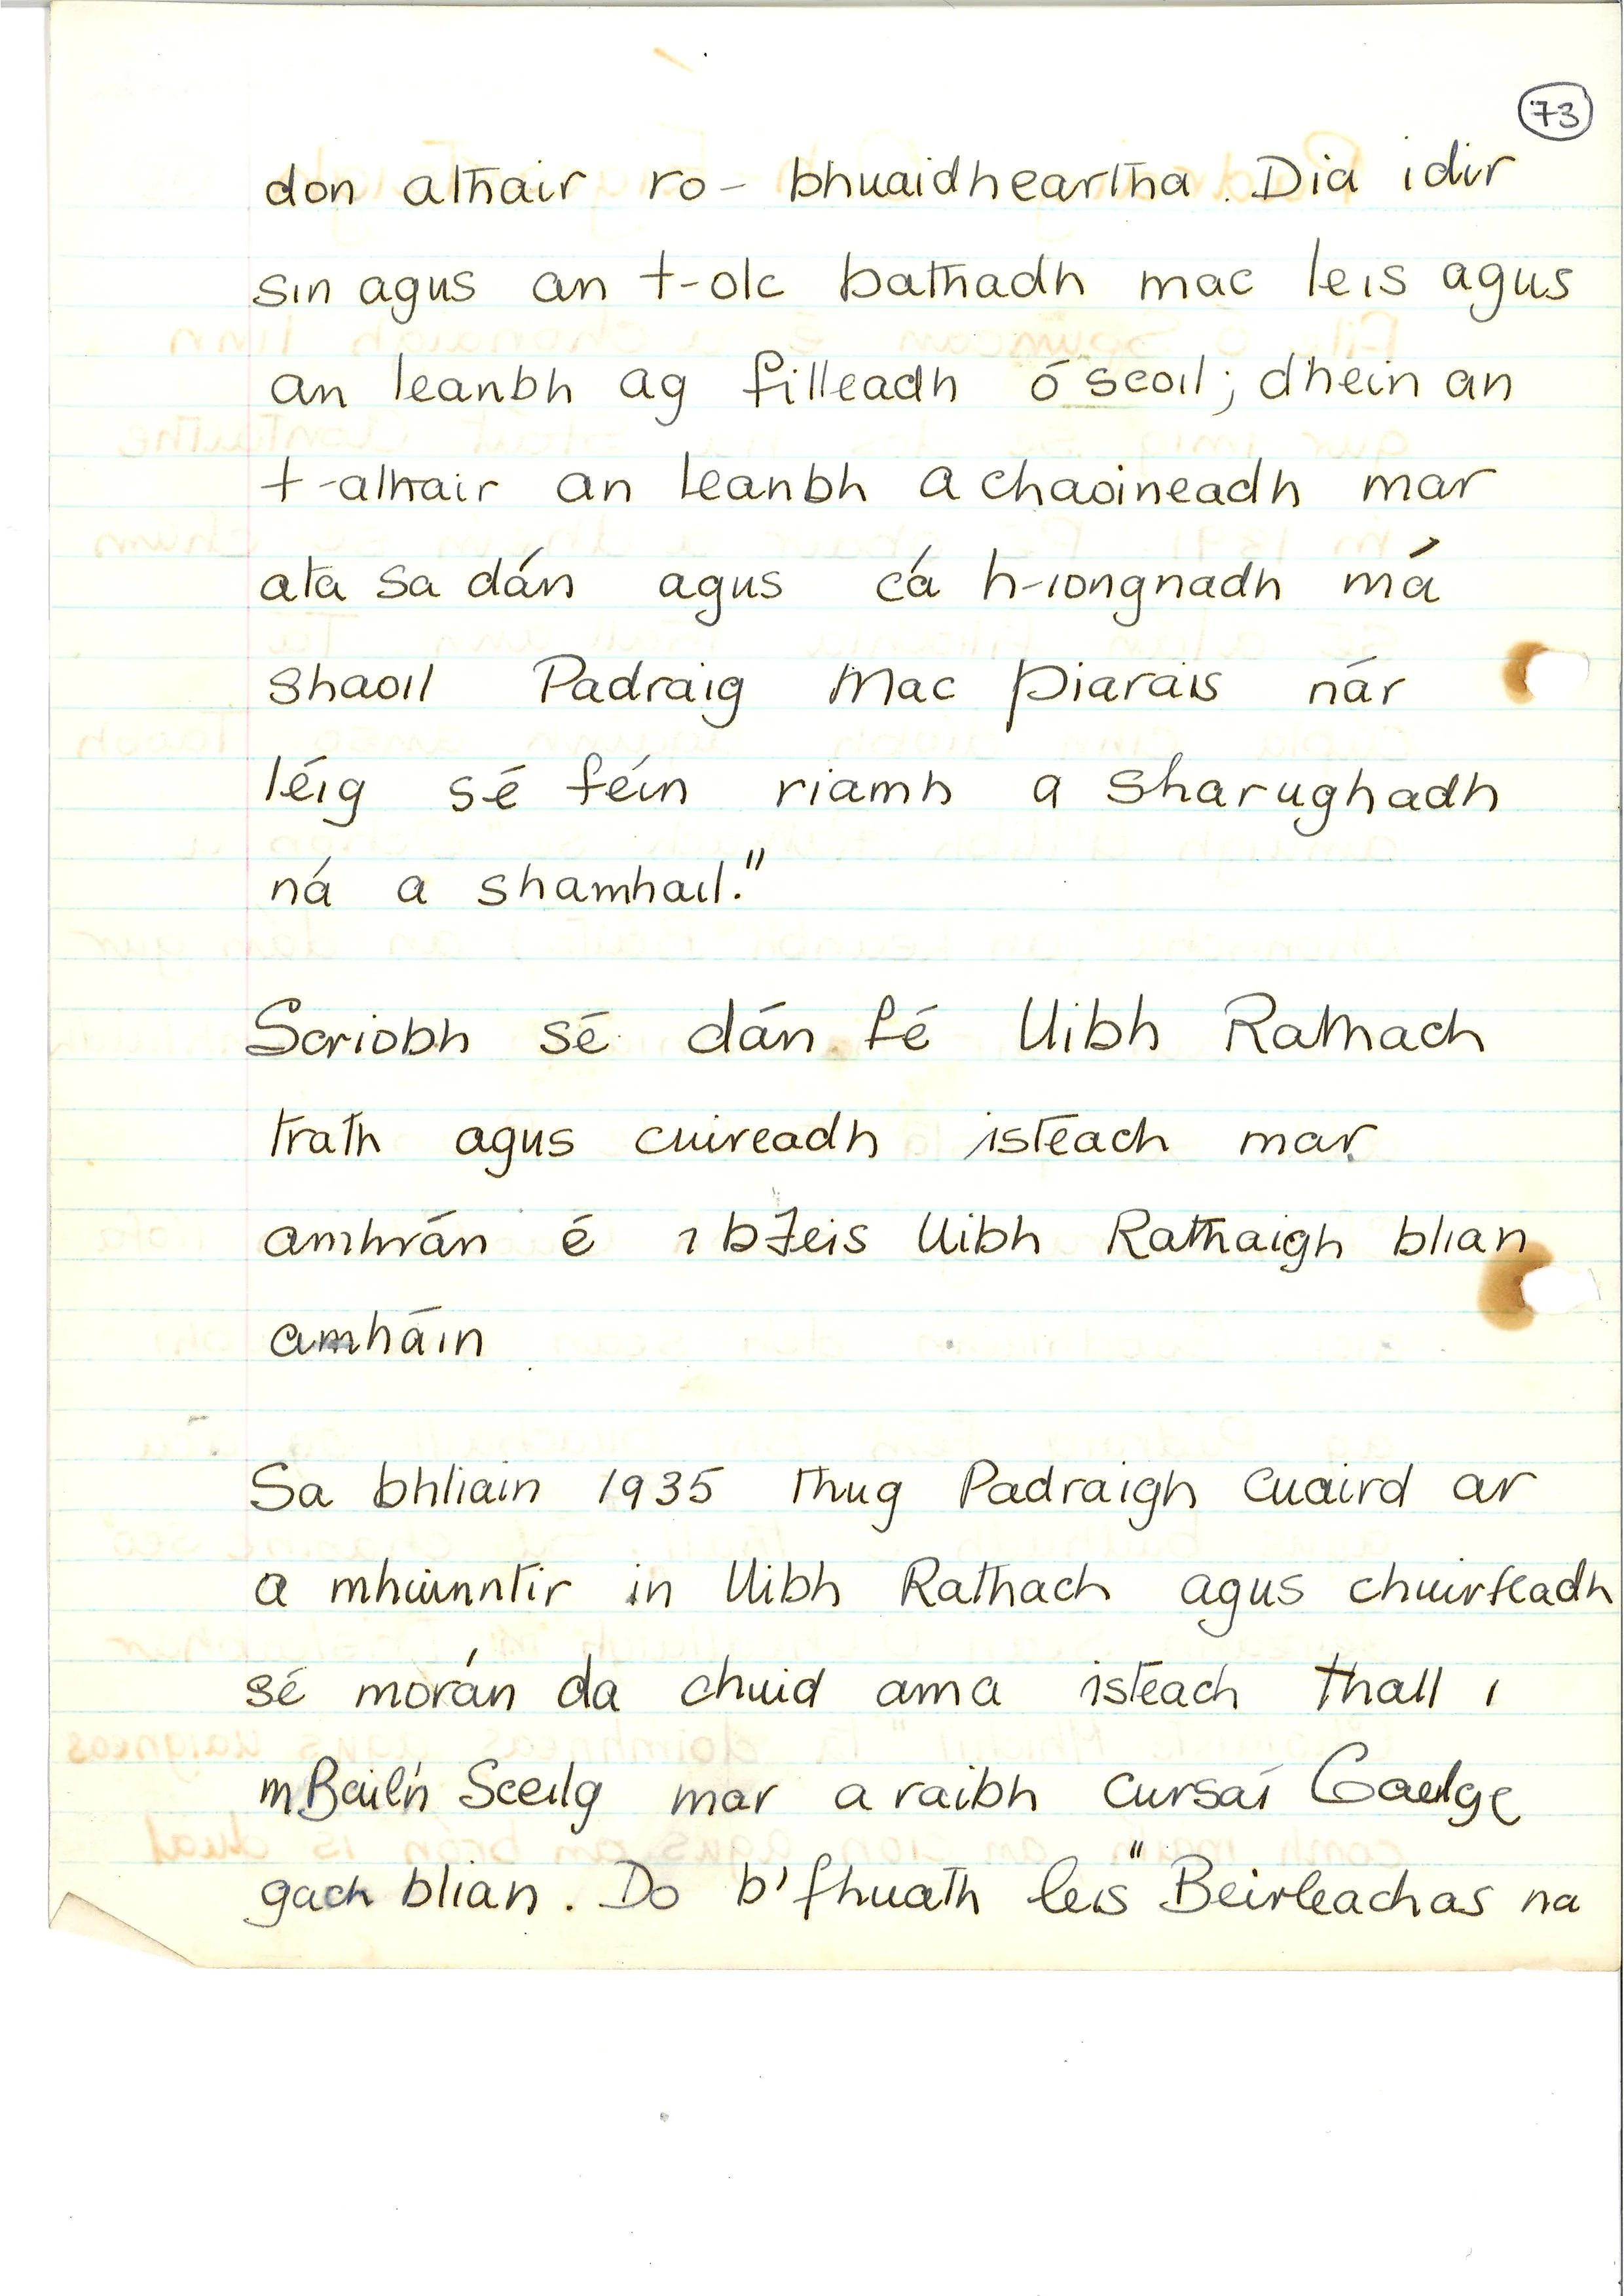 73
don athair ro- bhuaidheartha. Dia idir
sin agus an t-olc bathadh mac leis agus
an leanbh ag filleadh ó scoil; dhein an
t-athair an leanbh a chaoineadh mar
ata sa dán agus cá h-iongnadh má
shaoil Padraig Mac Piarais nár
léig sé féin riamh a sharughadh
ná a shamhail."
Scriobh sé dán fé Uibh Rathach
trath agus cuireadh isteach mar
amhrán é i bFeis Uibh Rathaigh blian
amháin
Sa bhliain 1935 thug Padraigh cuaird ar
a mhuinntir in Uibh Rathach agus chuirfeadh
sé morán da chuid ama isteach thall i
mBailín Sceilg mar a raibh cursaí Gaelge
gach blian. Do b'fhuath leis "Beirleachas na